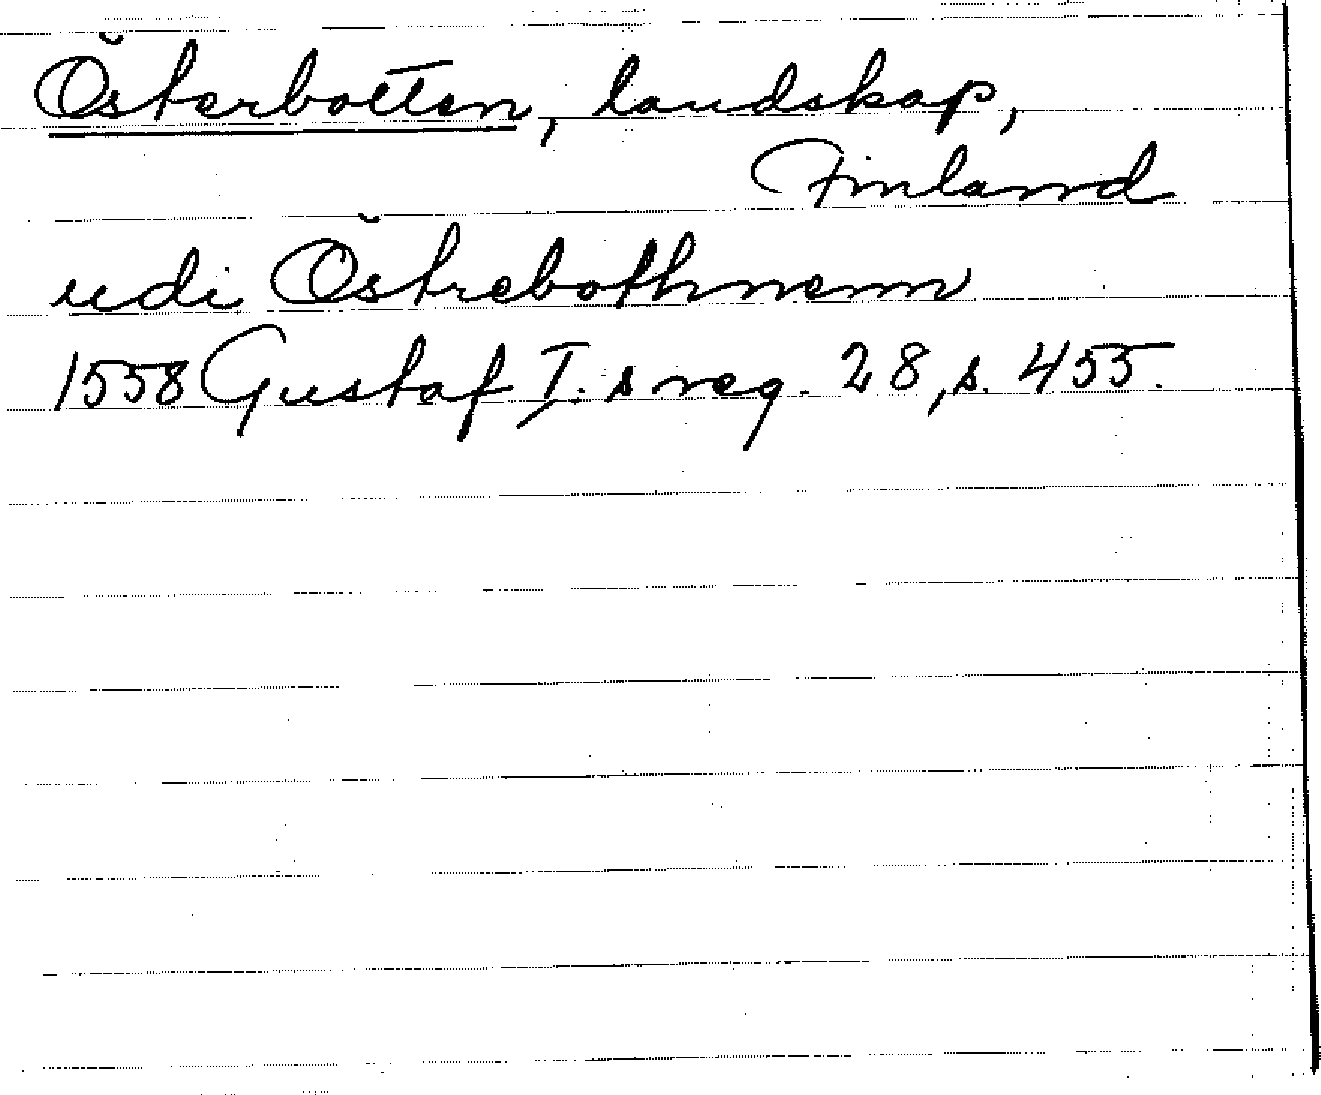 Österbotten, landskap,
Finland
udi Östrebothnenn
1558 Gustaf I:s reg. 28, s. 455.